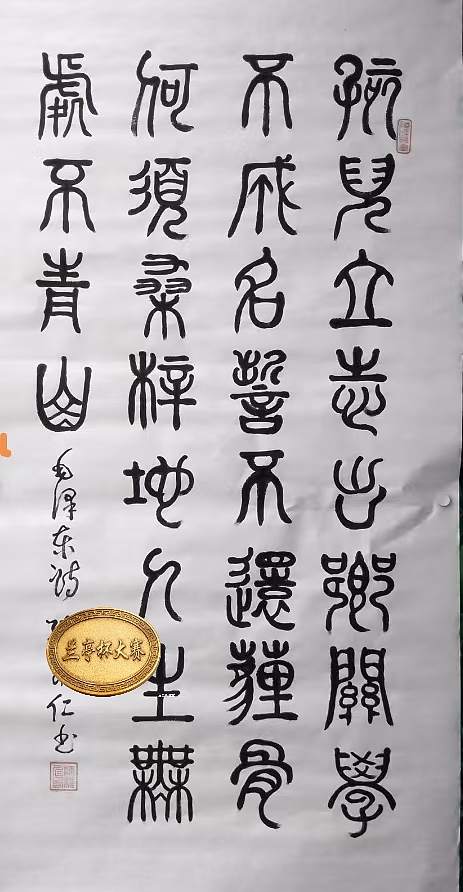 孩兒立志出鄉關學
不成名誓不還薶骨
何須桑梓地人生無
處不青山
毛泽东诗
仁书
兰亭杯大赛